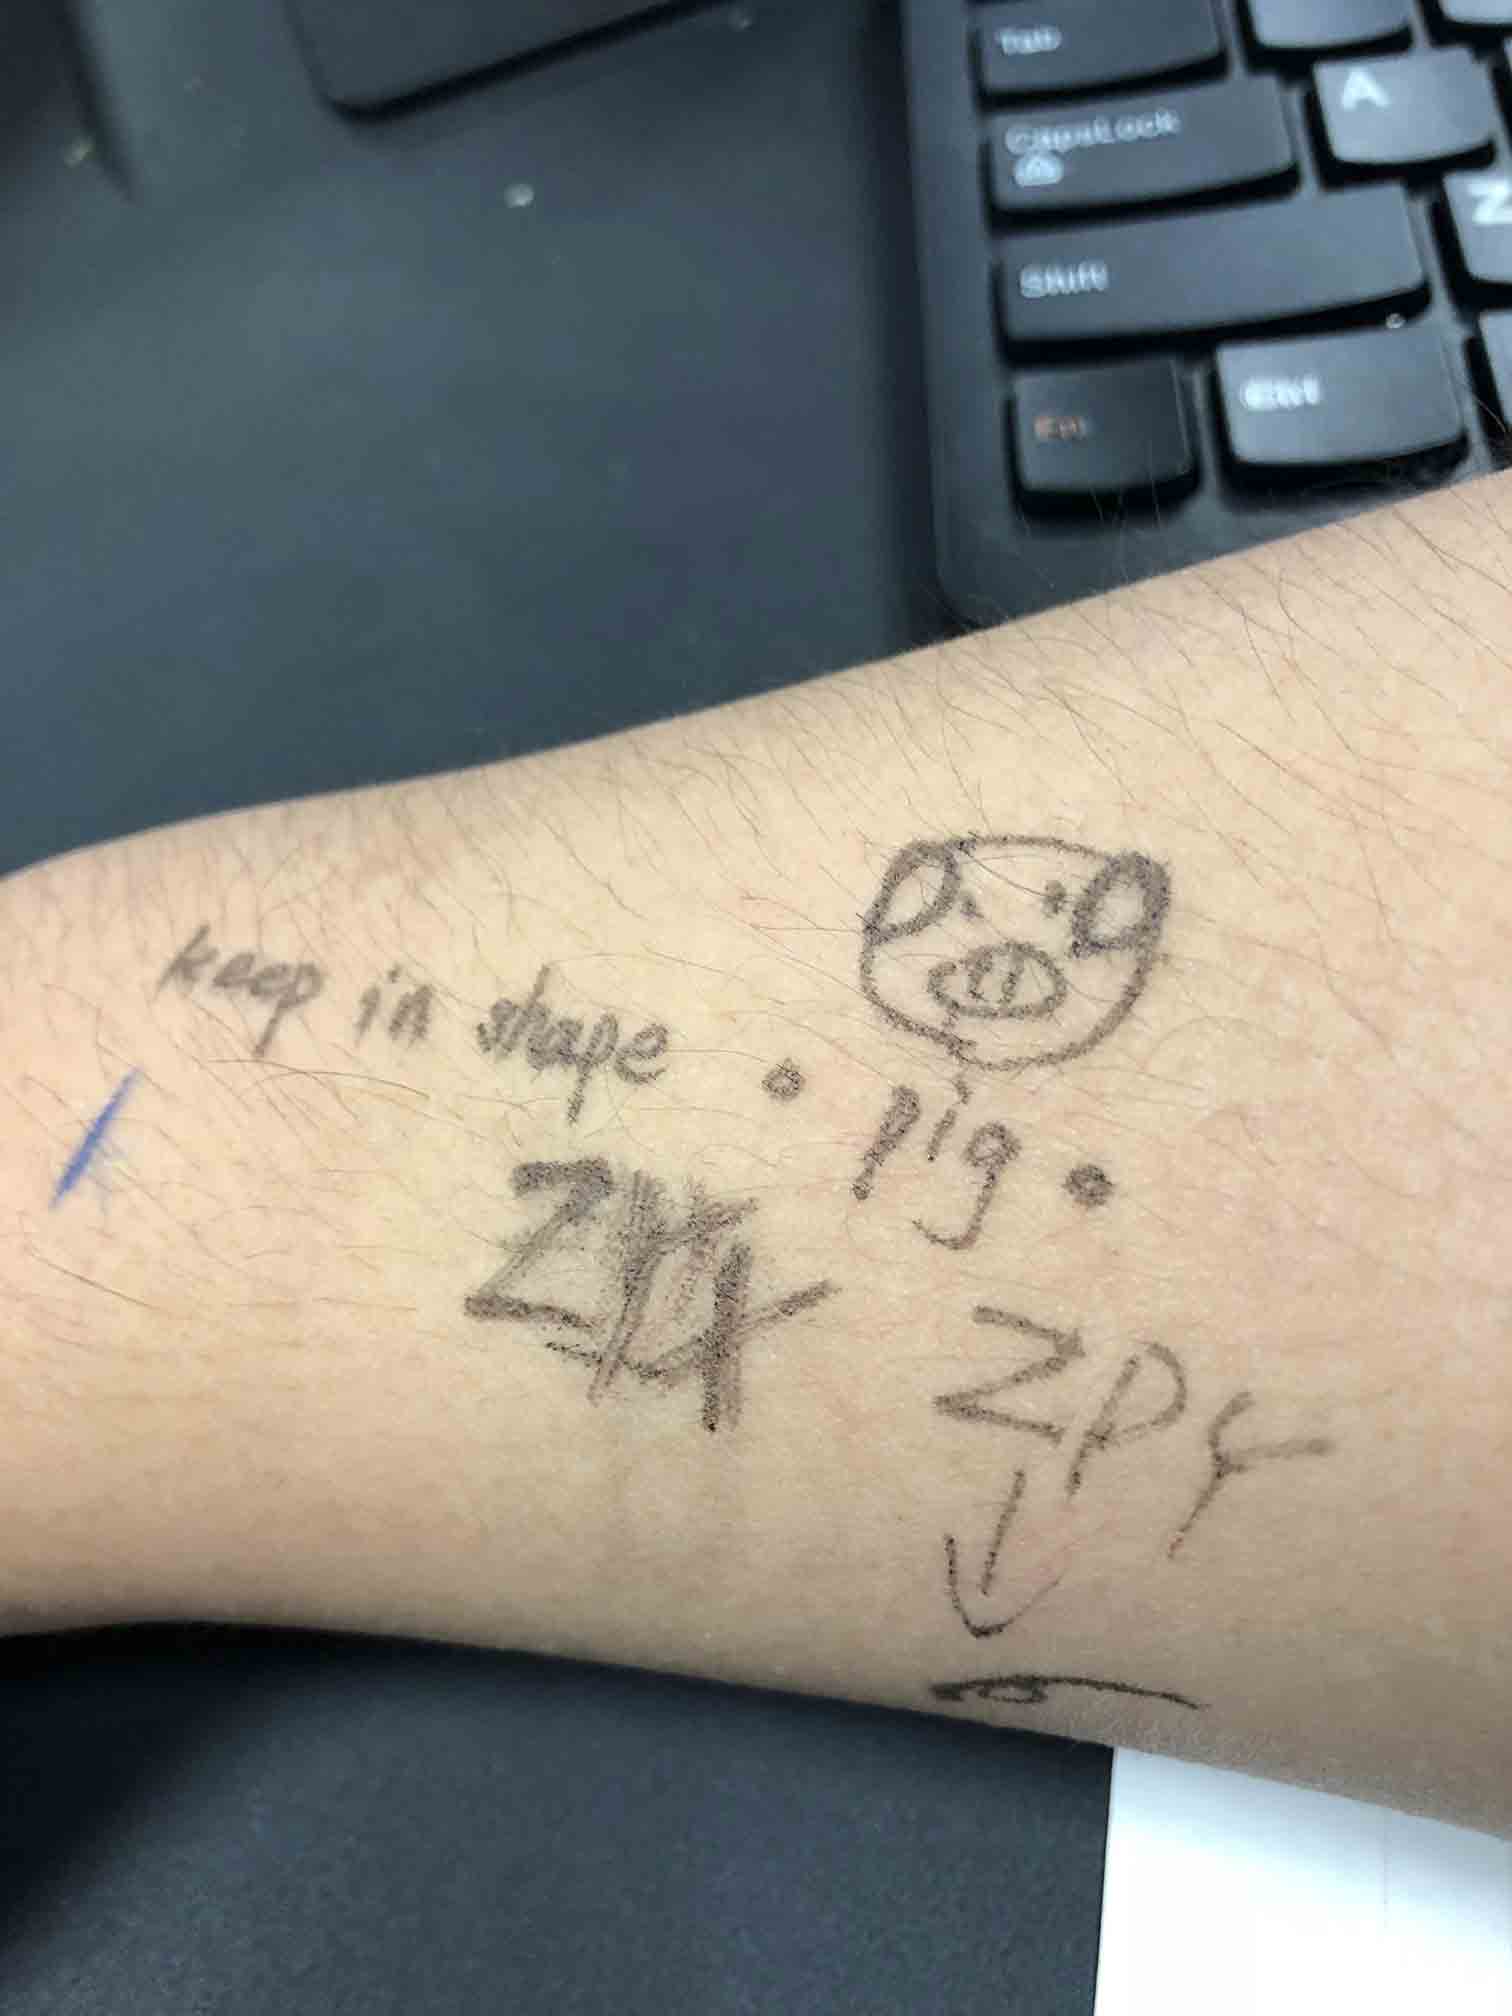 Tab
A
CapsLock
Z
Shift
Fn
Ctrl
keep in shape
pig
ZPY